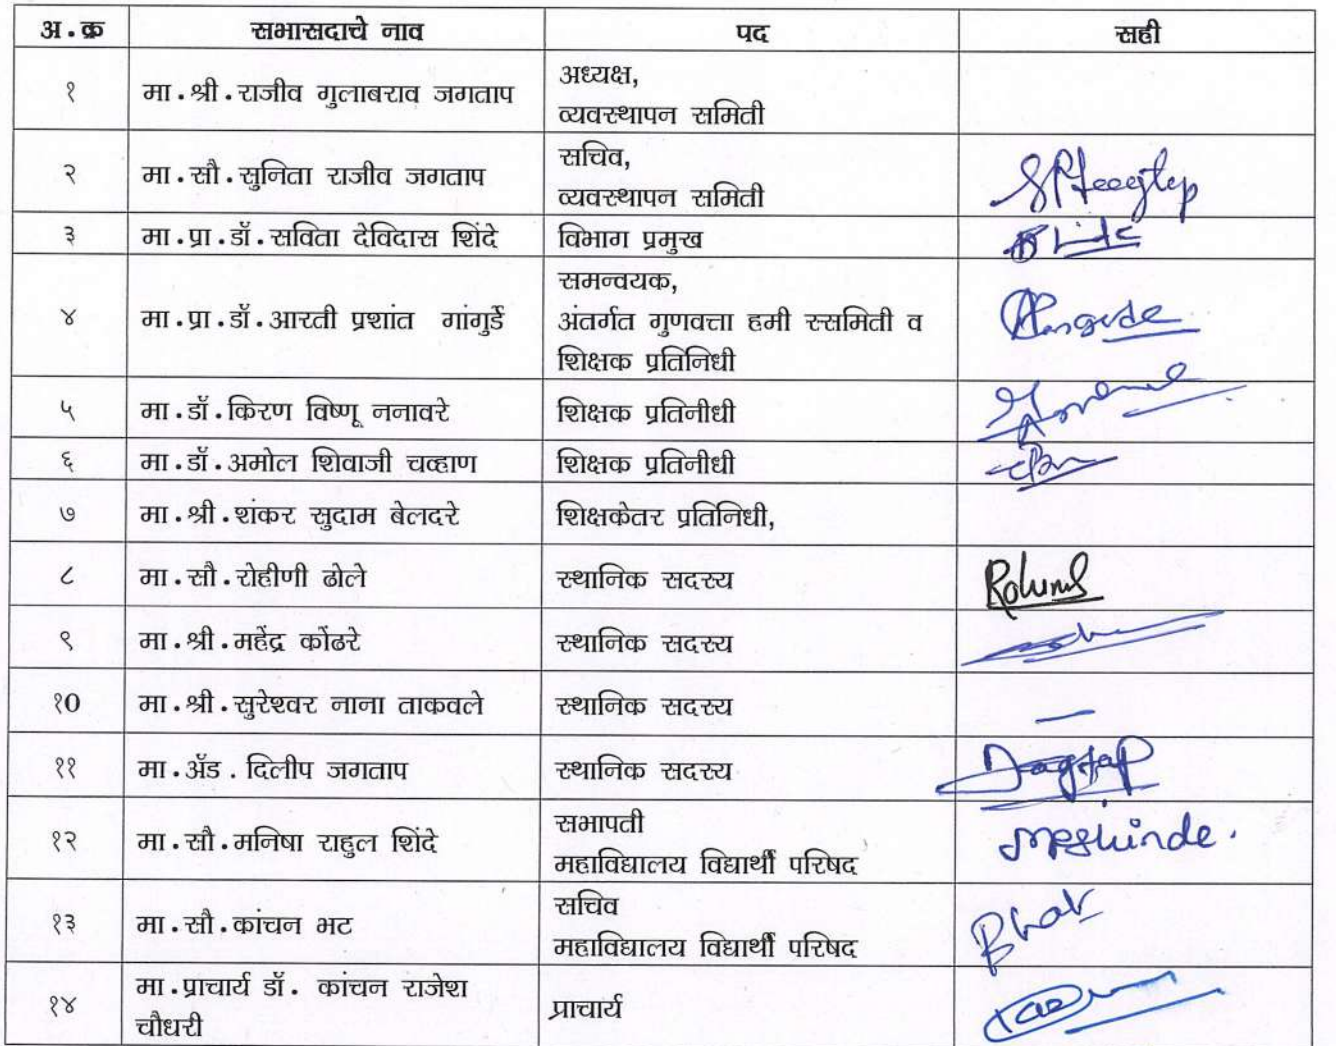 अ.क्र सभासदाचे नाव पद सही
१ मा.श्री.राजीव गुलाबराव जगताप अध्यक्ष,
व्यवस्थापन समिती
२ मा.सौ.सुनिता राजीव जगताप सचिव,
व्यवस्थापन समिती
३ मा.प्रा.डॉ.सविता देविदास शिंदे विभाग प्रमुख
४ मा.प्रा.डॉ.आरती प्रशांत गांगुर्डे समन्वयक,
अंतर्गत गुणवत्ता हमी स्समिती व
शिक्षक प्रतिनिधी
५ मा.डॉ.किरण विष्णू ननावरे शिक्षक प्रतिनीधी
६ मा.डॉ.अमोल शिवाजी चव्हाण शिक्षक प्रतिनीधी
७ मा.श्री.शंकर सुदाम बेलदरे शिक्षकेतर प्रतिनिधी,
८ मा.सौ.रोहीणी ढोले स्थानिक सदस्य
९ मा.श्री.महेंद्र कोंढरे स्थानिक सदस्य
१0 मा.श्री.सुरेश्वर नाना ताकवले स्थानिक सदस्य
११ मा.अ‍ॅड . दिलीप जगताप स्थानिक सदस्य Jagtap
१२ मा.सौ.मनिषा राहुल शिंदे सभापती
महाविद्यालय विद्यार्थी परिषद mrshinde.
१३ मा.सौ.कांचन भट सचिव
महाविद्यालय विद्यार्थी परिषद Bhat
१४ मा.प्राचार्य डॉ. कांचन राजेश
चौधरी प्राचार्य